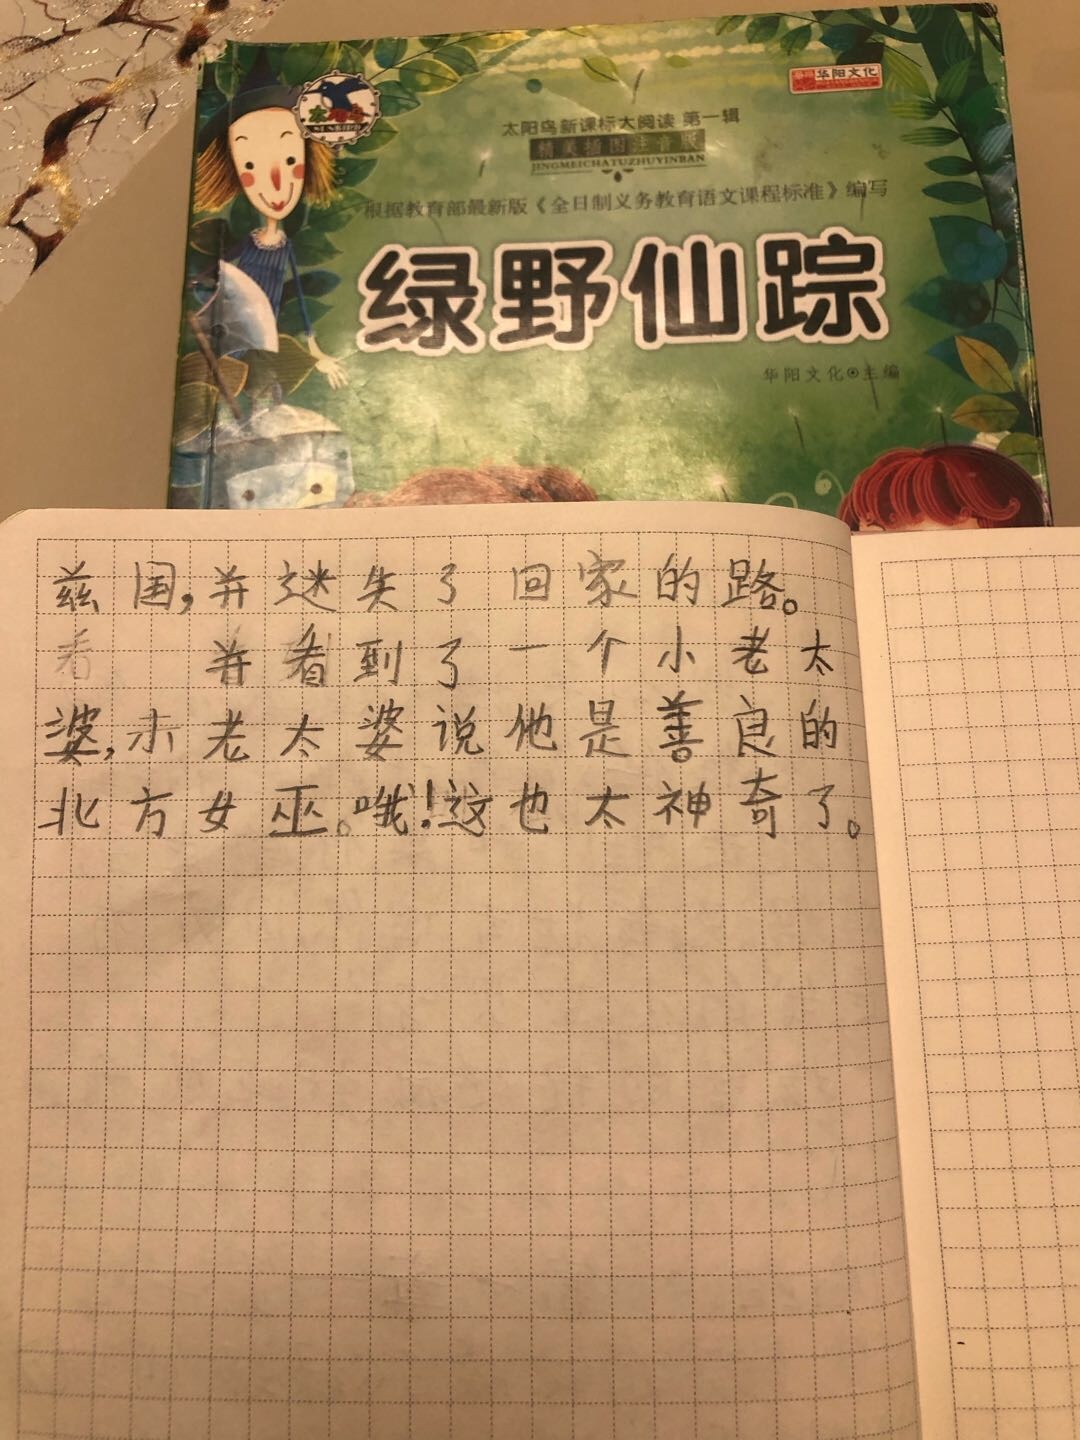 华阳文化
太阳鸟
SUNBIRD
太阳鸟新课标大阅读 第一辑
精美插图注音版
JINGMEICHATUZHUYINBAN
根据教育部最新版《全日制义务教育语文课程标准》编写
绿野仙踪
华阳文化⊙主编
兹国,并迷失了回家的路。
看 并看到了一个小老太
婆,小老太婆说他是善良的
北方女巫。哦!这也太神奇了。